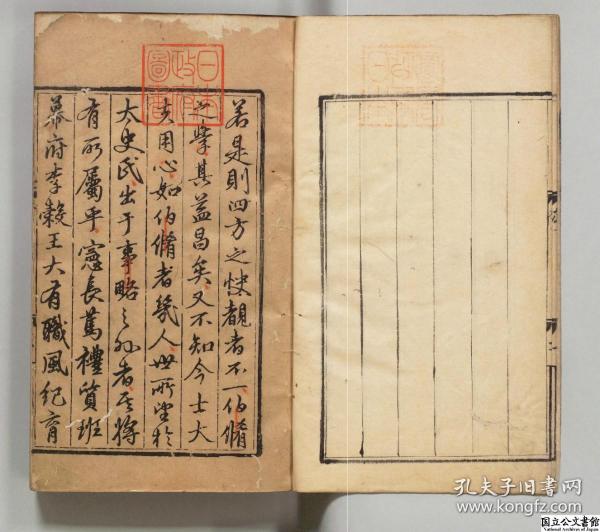 若是則四方之快覩者不一伯脩
之學其益昌矣又不知今士大
夫用心如伯脩者幾人世所望於
太史氏出于事略之外者其將
有所屬乎憲長篤禮質班
幕府李穀王大有職風紀育
日本
政府
圖書
孔夫子旧书网
www.kongfz.com
国立公文書館
National Archives of Japan